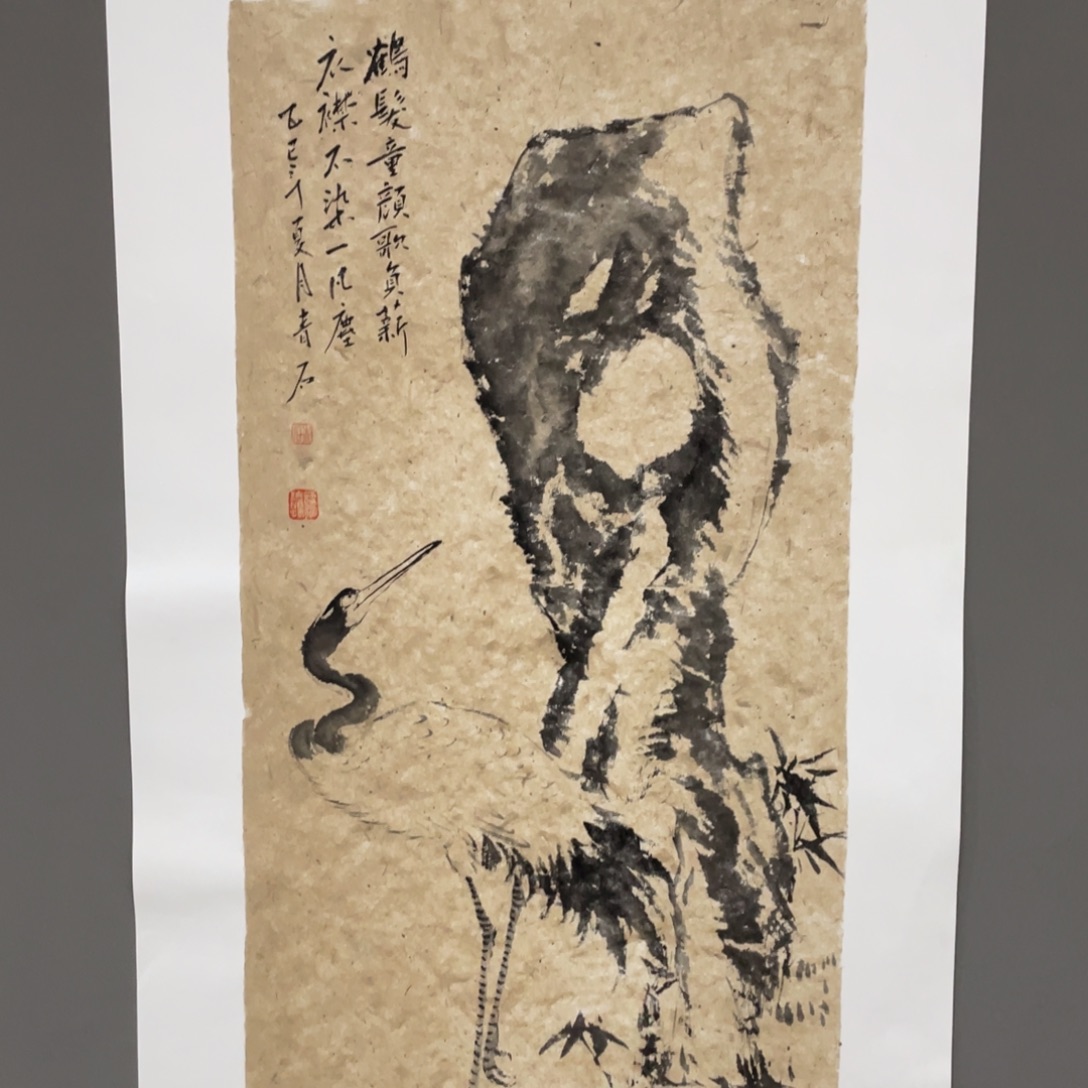 鶴髮童顏歌負薪
衣襟不染一凡塵
乙巳夏月青石